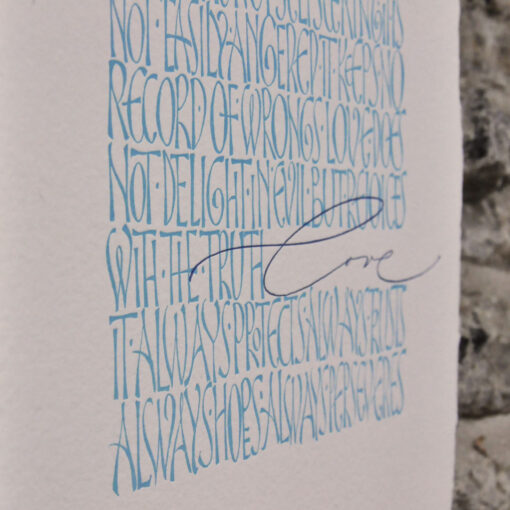 NOT·EASILY·ANGERED·IT·KEEPS·NO
RECORD OF WRONGS·LOVE·DOES
NOT·DELIGHT·IN·EVIL·BUT·REJOICES
WITH·THE·TRUTH love
IT·ALWAYS·PROTECTS·ALWAYS·TRUSTS
ALWAYS·HOPES·ALWAYS·PERSEVERES